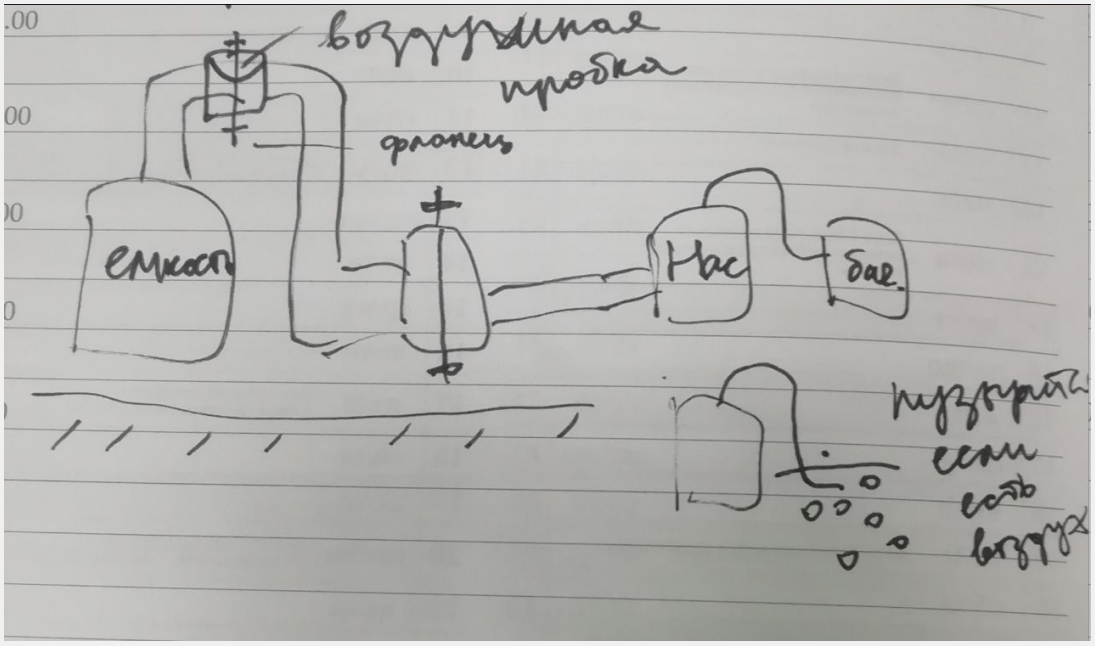 .00
воздушная
пробка
00
фланец
00
емкость
Нас
бак.
0
пузыри
если
есть
воздух